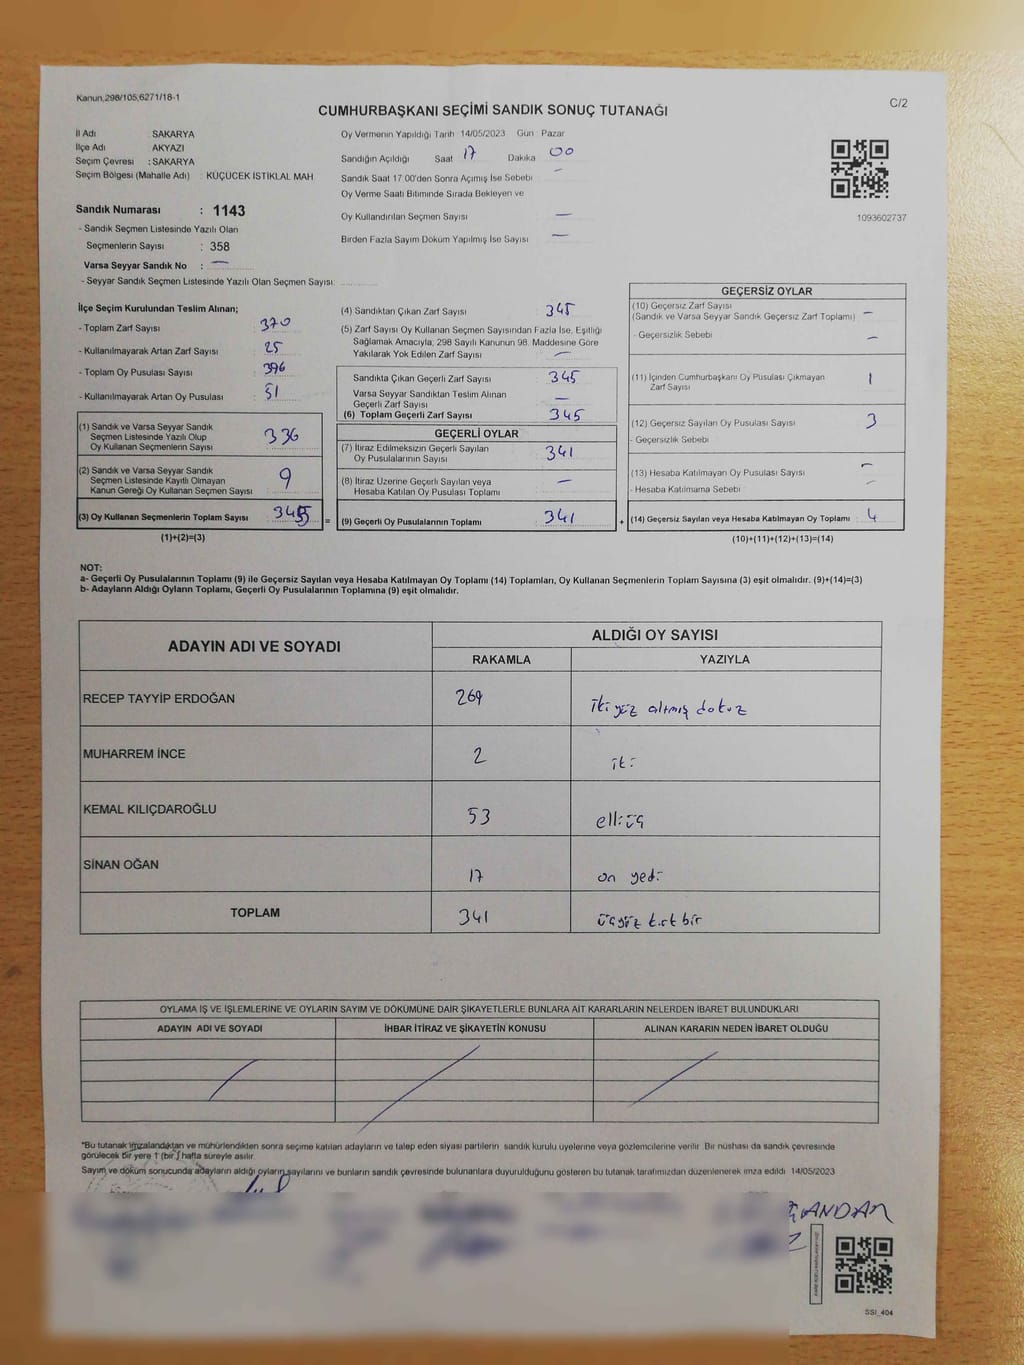 Kanun,298/105,6271/18-1
C/2
CUMHURBAŞKANI SEÇİMİ SANDIK SONUÇ TUTANAĞI
İl Adı : SAKARYA
İlçe Adı : AKYAZI
Seçim Çevresi : SAKARYA
Seçim Bölgesi (Mahalle Adı) : KÜÇÜCEK İSTİKLAL MAH
Sandık Numarası : 1143
- Sandık Seçmen Listesinde Yazılı Olan
Seçmenlerin Sayısı : 358
Varsa Seyyar Sandık No : —
- Seyyar Sandık Seçmen Listesinde Yazılı Olan Seçmen Sayısı:
Oy Vermenin Yapıldığı Tarih 14/05/2023 Gün Pazar
Sandığın Açıldığı Saat 17 Dakika 00
Sandık Saat 17 00'den Sonra Açımış İse Sebebi —
Oy Verme Saati Bitiminde Sırada Bekleyen ve
Oy Kullandırılan Seçmen Sayısı —
Birden Fazla Sayım Döküm Yapılmış İse Sayısı —
1093602737
İlçe Seçim Kurulundan Teslim Alınan;
- Toplam Zarf Sayısı 370
- Kullanılmayarak Artan Zarf Sayısı 25
- Toplam Oy Pusulası Sayısı 396
- Kullanılmayarak Artan Oy Pusulası 51
(1) Sandık ve Varsa Seyyar Sandık
Seçmen Listesinde Yazılı Olup
Oy Kullanan Seçmenlerin Sayısı 336
(2) Sandık ve Varsa Seyyar Sandık
Seçmen Listesinde Kayıtlı Olmayan
Kanun Gereği Oy Kullanan Seçmen Sayısı 9
(3) Oy Kullanan Seçmenlerin Toplam Sayısı 345
(1)+(2)=(3)
(4) Sandıktan Çıkan Zarf Sayısı 345
(5) Zarf Sayısı Oy Kullanan Seçmen Sayısından Fazla İse, Eşitliği
Sağlamak Amacıyla, 298 Sayılı Kanunun 98. Maddesine Göre
Yakılarak Yok Edilen Zarf Sayısı —
Sandıkta Çıkan Geçerli Zarf Sayısı 345
Varsa Seyyar Sandıktan Teslim Alınan
Geçerli Zarf Sayısı —
(6) Toplam Geçerli Zarf Sayısı 345
GEÇERLİ OYLAR
(7) İtiraz Edilmeksizin Geçerli Sayılan
Oy Pusulalarının Sayısı 341
(8) İtiraz Üzerine Geçerli Sayılan veya
Hesaba Katılan Oy Pusulası Toplamı —
= (9) Geçerli Oy Pusulalarının Toplamı 341
GEÇERSİZ OYLAR
(10) Geçersiz Zarf Sayısı
(Sandık ve Varsa Seyyar Sandık Geçersiz Zarf Toplamı) —
- Geçersizlik Sebebi —
(11) İçinden Cumhurbaşkanı Oy Pusulası Çıkmayan
Zarf Sayısı 1
(12) Geçersiz Sayılan Oy Pusulası Sayısı 3
- Geçersizlik Sebebi
(13) Hesaba Katılmayan Oy Pusulası Sayısı —
- Hesaba Katılmama Sebebi —
+ (14) Geçersiz Sayılan veya Hesaba Katılmayan Oy Toplamı 4
(10)+(11)+(12)+(13)=(14)
NOT:
a- Geçerli Oy Pusulalarının Toplamı (9) ile Geçersiz Sayılan veya Hesaba Katılmayan Oy Toplamı (14) Toplamları, Oy Kullanan Seçmenlerin Toplam Sayısına (3) eşit olmalıdır. (9)+(14)=(3)
b- Adayların Aldığı Oyların Toplamı, Geçerli Oy Pusulalarının Toplamına (9) eşit olmalıdır.
ADAYIN ADI VE SOYADI
ALDIĞI OY SAYISI
RAKAMLA YAZIYLA
RECEP TAYYİP ERDOĞAN 269 iki yüz altmış dokuz
MUHARREM İNCE 2 iki
KEMAL KILIÇDAROĞLU 53 elli üç
SİNAN OĞAN 17 on yedi
TOPLAM 341 üçyüz kırk bir
OYLAMA İŞ VE İŞLEMLERİNE VE OYLARIN SAYIM VE DÖKÜMÜNE DAİR ŞİKAYETLERLE BUNLARA AİT KARARLARIN NELERDEN İBARET BULUNDUKLARI
ADAYIN ADI VE SOYADI İHBAR İTİRAZ VE ŞİKAYETİN KONUSU ALINAN KARARIN NEDEN İBARET OLDUĞU
*Bu tutanak imzalandıktan ve mühürlendikten sonra seçime katılan adayların ve talep eden siyasi partilerin sandık kurulu üyelerine veya gözlemcilerine verilir. Bir nüshası da sandık çevresinde
görülecek bir yere 1 (bir) hafta süreyle asılır.
Sayım ve döküm sonucunda adayların aldığı oyların sayılarını ve bunların sandık çevresinde bulunanlara duyurulduğunu gösteren bu tutanak tarafımızdan düzenlenerek imza edildi 14/05/2023
SSI_404